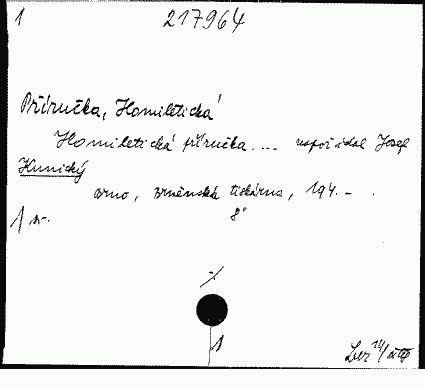 1 217964
Příručka, Homiletická
Homiletická příručka.... uspořádal Josef
Hunický
Brno, Brněnská tiskárna, 194.-.
1 sv. 8°
1